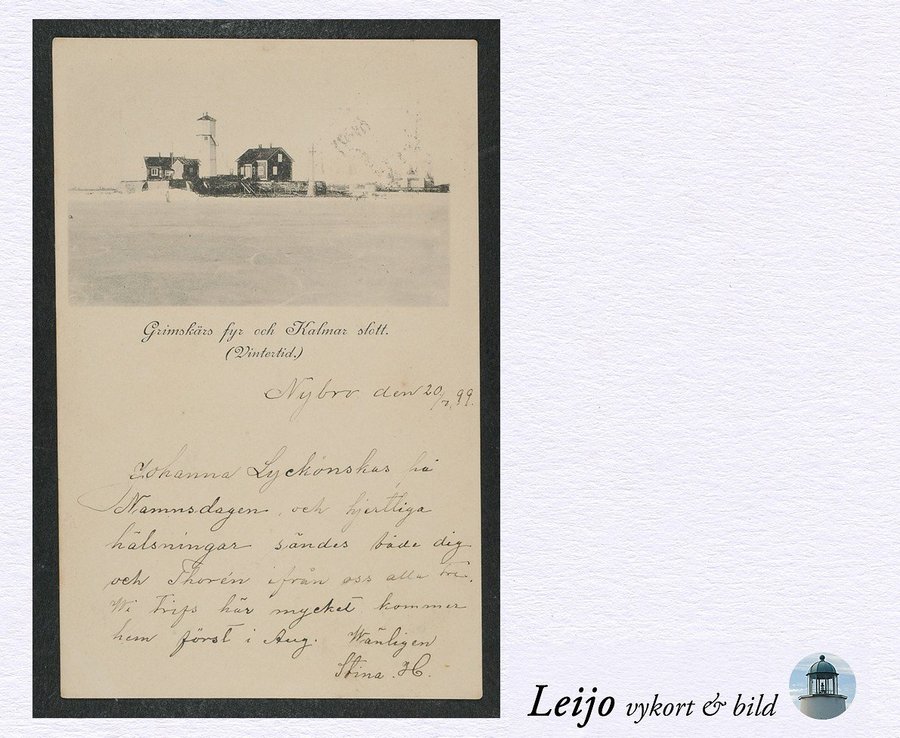 Grimskärs fyr och Kalmar slott.
(Vintertid.)
Nybro den 20/7 99.
Johanna Lyckönskas på
Namnsdagen och hjertliga
hälsningar sändes både dig
och Thorén ifrån oss alla tre.
Wi trifs här mycket kommer
hem först i Aug. Wänligen
Stina H.
Leijo vykort & bild